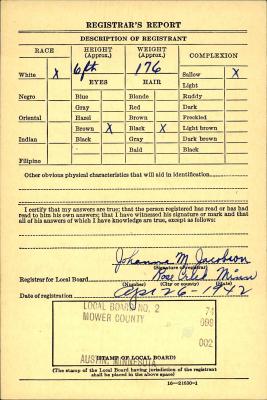 REGISTRAR'S REPORT
DESCRIPTION OF REGISTRANT
RACE HEIGHT (Approx.) WEIGHT (Approx.) COMPLEXION
White X 6 ft 176 Sallow X
EYES HAIR Light
Negro Blue Blonde Ruddy
Gray Red Dark
Oriental Hazel Brown Freckled
Brown X Black X Light brown
Indian Black Gray Dark brown
Bald Black
Filipino
Other obvious physical characteristics that will aid in identification
I certify that my answers are true; that the person registered has read or has had
read to him his own answers; that I have witnessed his signature or mark and that
all of his answers of which I have knowledge are true, except as follows:
Johanna M. Jacobson
(Signature of registrar)
Registrar for Local Board Rose Creek Minn
(Number) (City or county) (State)
Date of registration Apr 26 - 1942
LOCAL BOARD NO. 2 74
MOWER COUNTY 099
002
AUSTIN, MINNESOTA
(STAMP OF LOCAL BOARD)
(The stamp of the Local Board having jurisdiction of the registrant
shall be placed in the above space)
16—21630-1